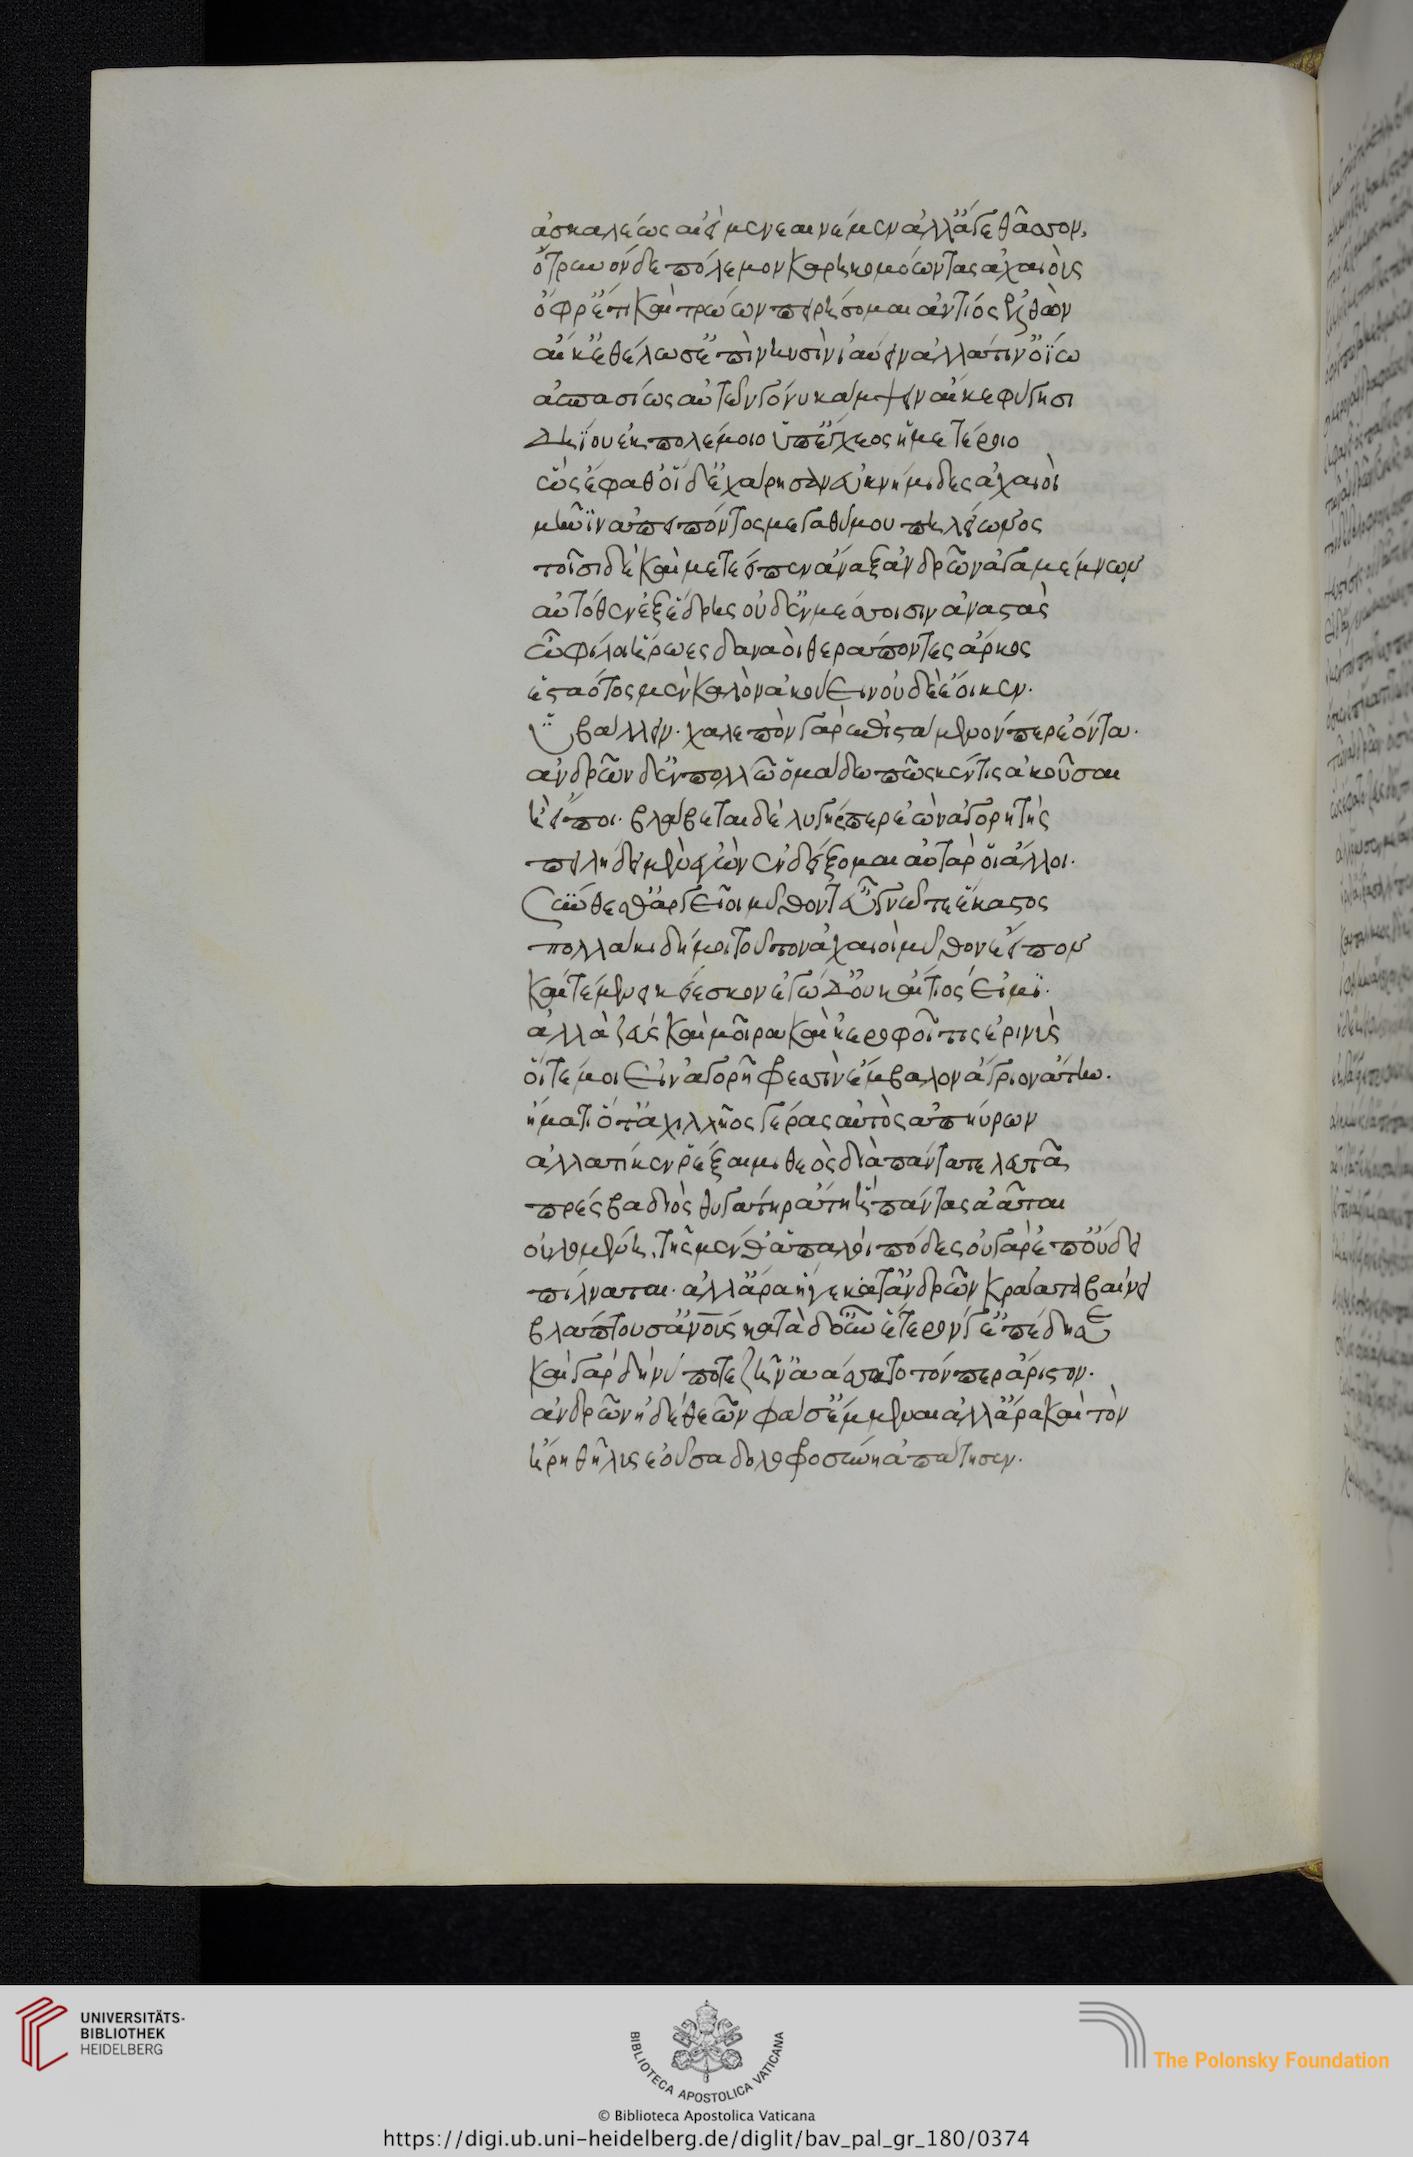 ἀσκαλέως αἰεὶ μενεαινέμεν ἀλλάγε θᾶσσον,
ὄτρυνον δὲ πόλεμον καρηκομόωντας ἀχαιοὺς
ὄφρ' ἔτι καὶ τρώων πειρήσομαι ἀντίος ἐλθὼν
αἴκ' ἐθέλωσ' ἐπὶ νηυσὶν ἰαύειν ἀλλά τιν' ὀΐω
ἀσπασίως αὐτῶν γόνυ κάμψειν αἴκε φύγησι
δηΐου ἐκ πολέμοιο ὑπ' ἔγχεος ἡμετέροιο
ὣς ἔφαθ' οἵ δ' ἐχάρησαν ἐυκνήμιδες ἀχαιοὶ
μῆνιν ἀπειπόντος μεγαθύμου πηλείωνος
τοῖσι δὲ καὶ μετέειπεν ἄναξ ἀνδρῶν ἀγαμέμνων
αὐτόθεν ἐξ ἕδρης οὐδ' ἐν μέσοισιν ἀναστὰς
ὦ φίλοι ἥρωες δαναοὶ θεράποντες ἄρηος
ἑσταότος μὲν καλὸν ἀκούειν οὐδὲ ἔοικεν.
ὑββάλλειν. χαλεπὸν γὰρ ἐπιστάμενόν περ ἐόντα.
ἀνδρῶν δ' ἐν πολλῶ ὁμάδω πῶς κέν τις ἀκοῦσαι
ἢ εἴποι. βλάβεται δὲ λιγύς περ ἐὼν ἀγορητής
πηλείδη μὲν ἐγὼν ἐνδείξομαι αὐτὰρ οἱ ἄλλοι.
σύνθεσθ' ἀργεῖοι μῦθόν τ' εὖ γνῶτε ἕκαστος
πολλάκι δή μοι τοῦτον ἀχαιοὶ μῦθον ἔειπον
καί τέ με νεικείεσκον ἐγὼ δ' οὐκ αἴτιός εἰμι.
ἀλλὰ ζεὺς καὶ μοῖρα καὶ ἠεροφοῖτις ἐρινὺς
οἵτέ μοι εἰν ἀγορῆ φρεσὶν ἔμβαλον ἄγριον ἄτην.
ἤματι ὅτ' ἀχιλλῆος γέρας αὐτὸς ἀπηύρων
ἀλλὰ τί κεν ῥέξαιμι θεὸς διὰ πάντα τελευτᾶ
πρέσβα διὸς θυγάτηρ ἄτη ἣ πάντας ἀᾶται
οὐλομένη, τῆς μέν θ' ἁπαλοὶ πόδες οὐ γὰρ ἐπ' οὔδει
πίλναται. ἀλλ' ἄρα ἥγε κατ' ἀνδρῶν κράατα βαίνει
βλάπτουσ' ἀνθρώπους κατὰ δ' οὖν ἕτερόν γε πέδησε
καὶ γὰρ δή νύ ποτε ζῆν' ἄασατο τόνπερ ἄριστον.
ἀνδρῶν ἠδὲ θεῶν φάσ' ἔμμεναι ἀλλ' ἄρα καὶ τὸν
ἥρη θῆλυς ἐοῦσα δολοφροσύνη ἀπάτησεν.
UNIVERSITÄTS-
BIBLIOTHEK
HEIDELBERG
BIBLIOTECA APOSTOLICA VATICANA
The Polonsky Foundation
© Biblioteca Apostolica Vaticana
https://digi.ub.uni-heidelberg.de/diglit/bav_pal_gr_180/0374